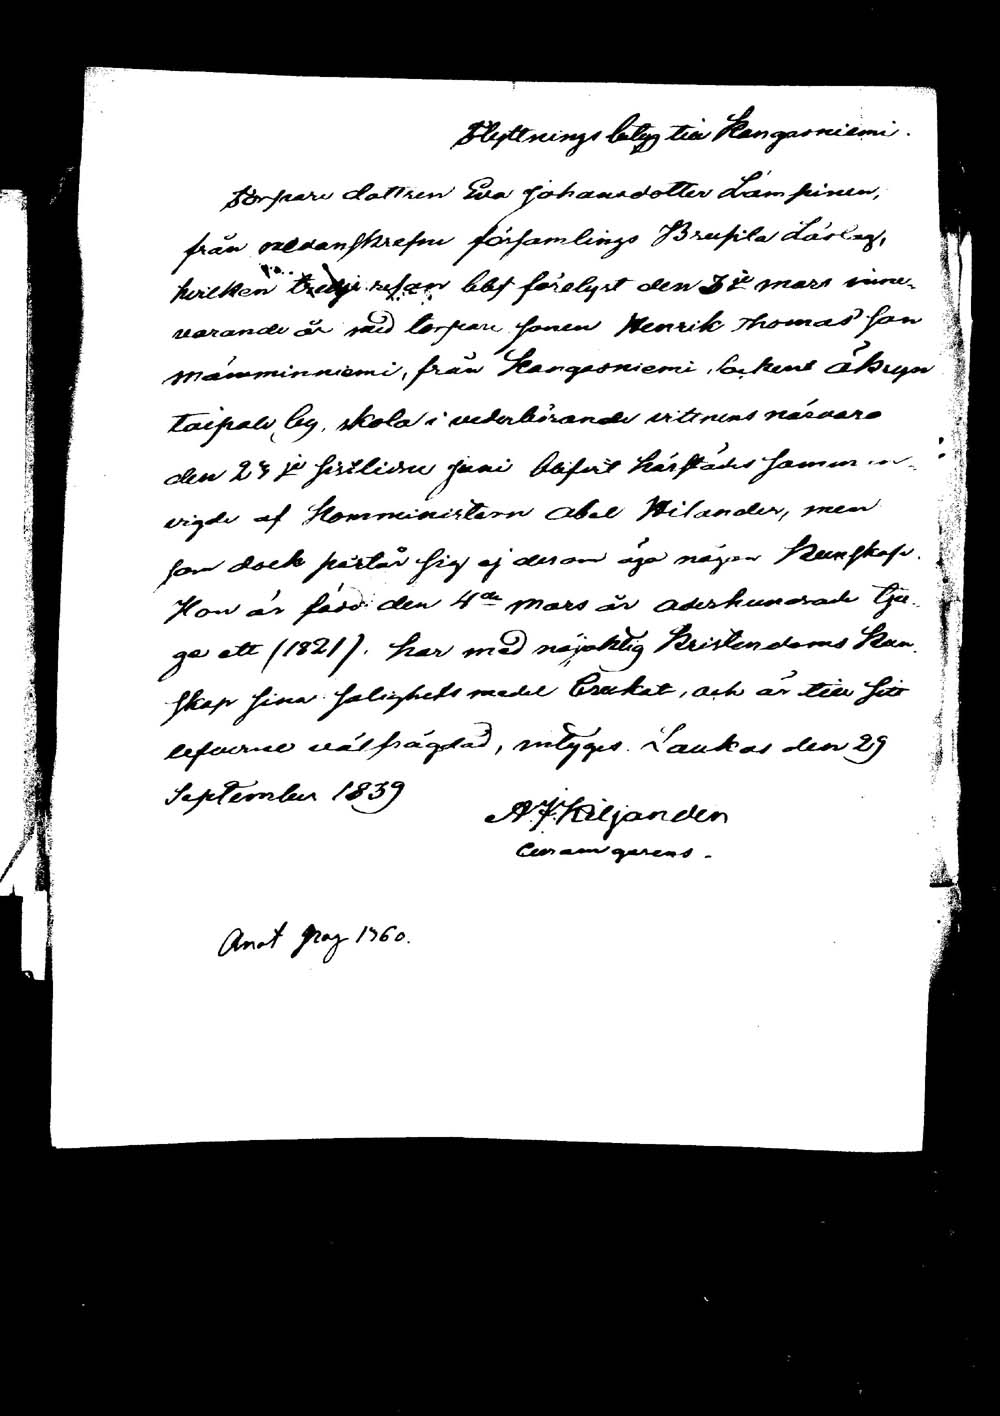 Flyttnings betyg till Kangasniemi.
Torpare dottren Eva Johansdotter Lämpinen,
från nedanskrefne församlings Läslag,
hvilken tredje resan blef förelyst den 3je mars inne-
varande år med torpare sonen Henrik Thomas son
Mämminniemi, från Kangasniemi sockens
Taipale by, skola i vederbörande vittnens närvaro
den 23je sistlidne Juni blifvit härstädes samman-
vigde af Komministern Abel Hilander, men
som dock påstår sig ej derom äga någon kunskap.
Hon är född den 4de Mars år aderhundrade tju-
ge ett (1821). har med nöjaktig Kristendoms kun-
skap sina salighets medel brukat, och är till sitt
lefverne välfrägdad, intygas. Laukas den 29
September 1839
A. F. Kiljander
Curam gerens.
Anot pag 1760.